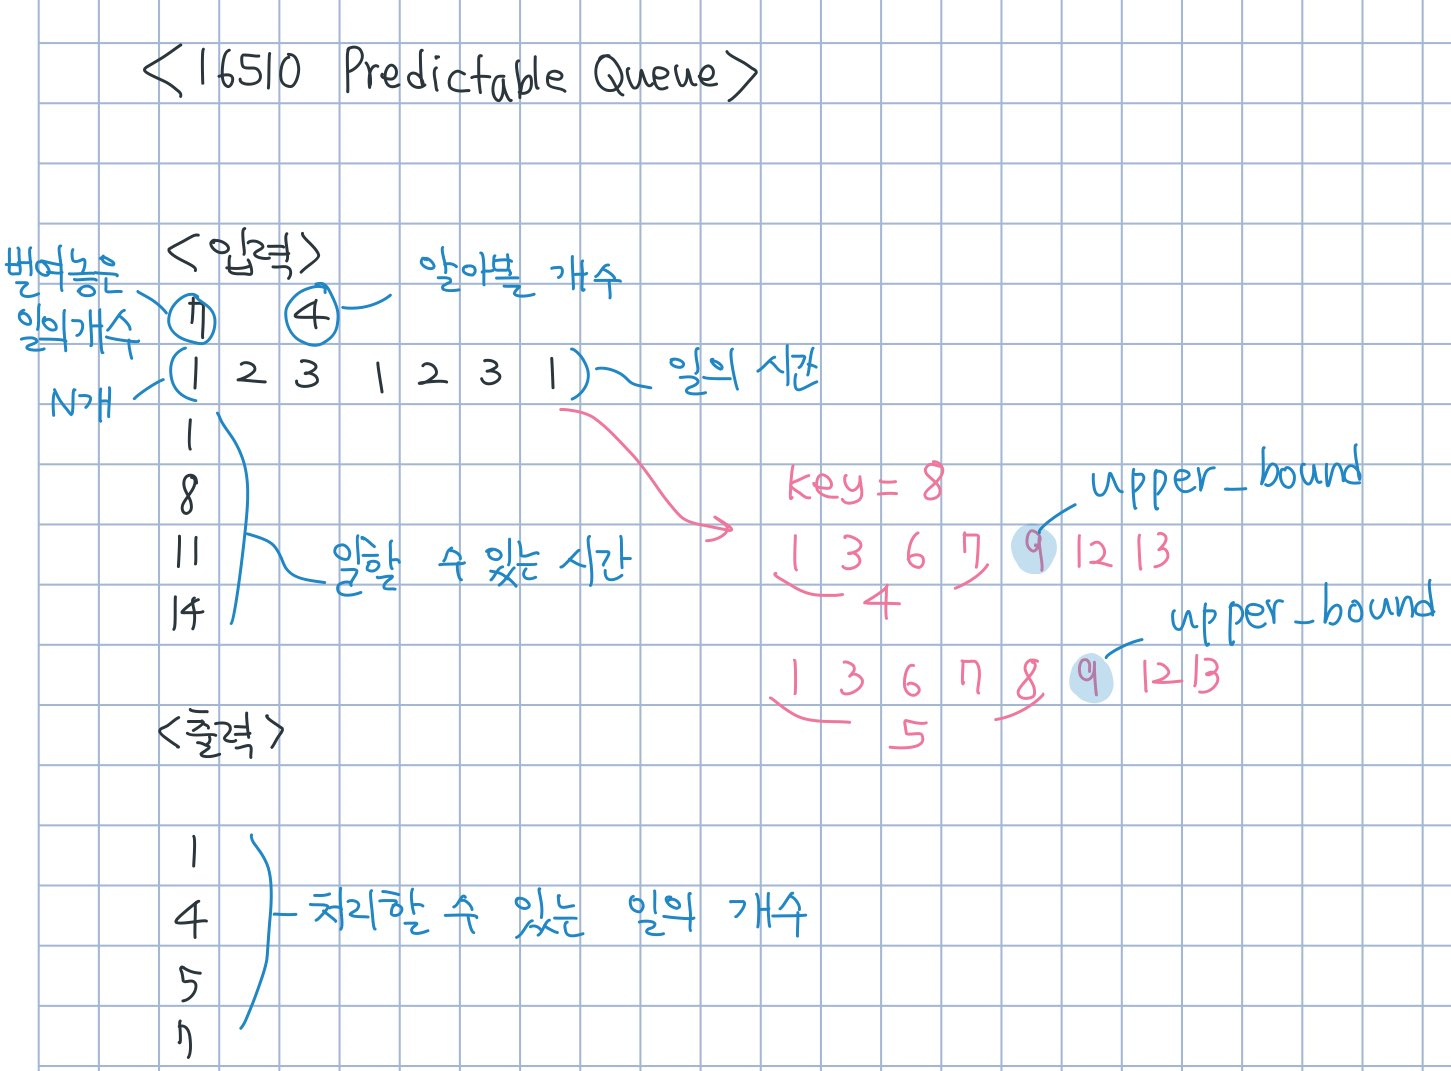 <16510 Predictable Queue>
<입력>
벌여놓은
일의개수
알아볼 개수
7 4
1 2 3 1 2 3 1
N개
일의 시간
1
8
11
14
일할 수 있는 시간
key = 8
upper_bound
1 3 6 7 9 12 13
4
upper_bound
1 3 6 7 8 9 12 13
5
<출력>
1
4
5
7
처리할 수 있는 일의 개수